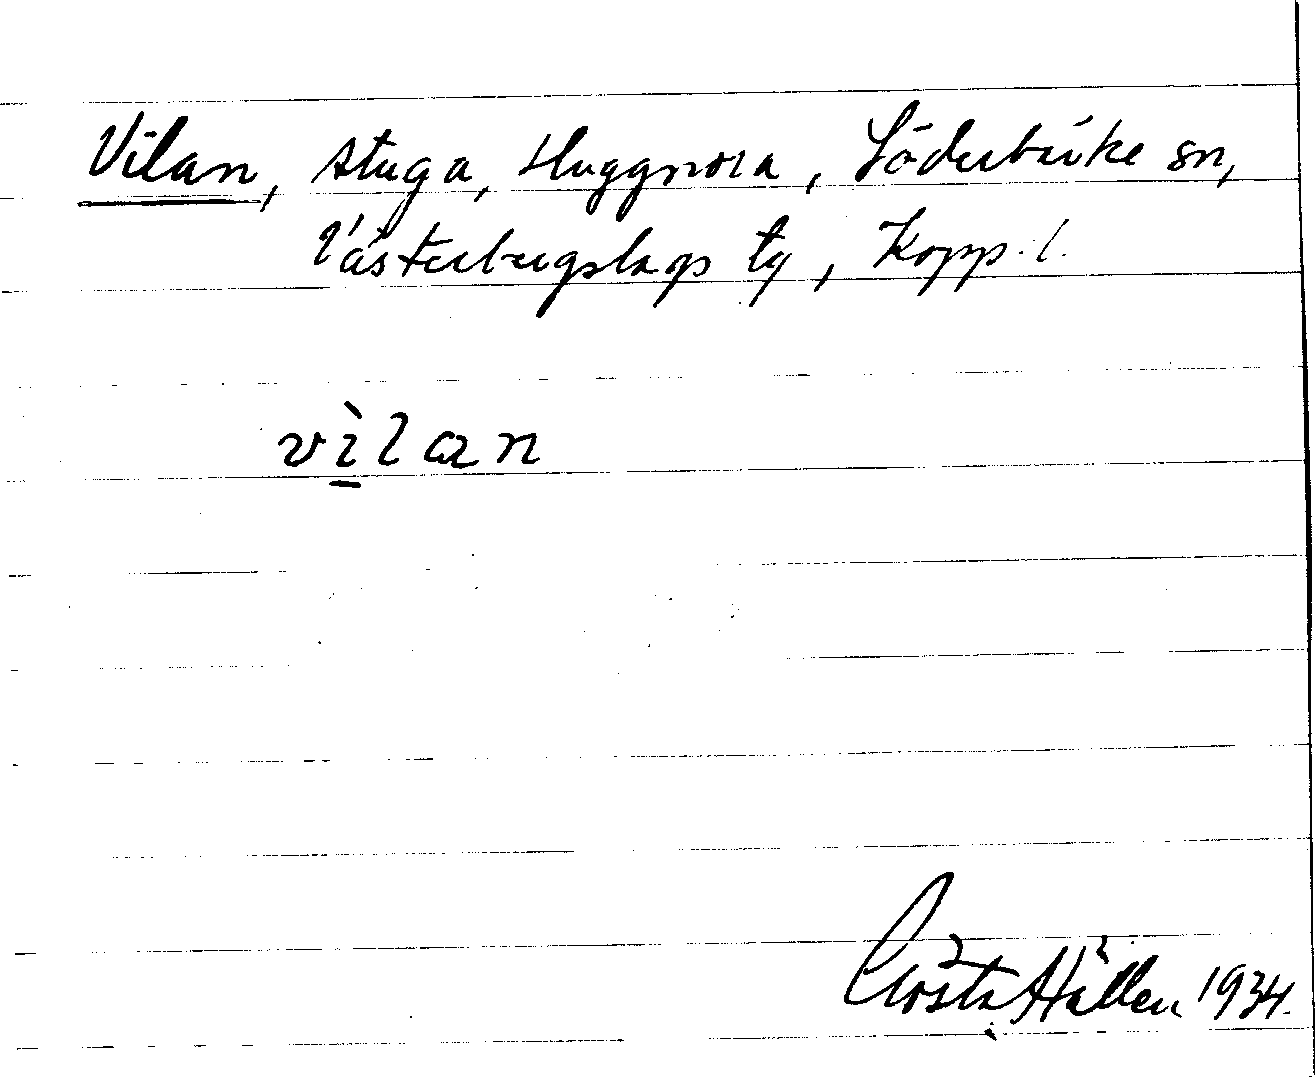 Vilan, stuga, Huggnora, Söderbärke sn,
Västerbergslags tg, Kopp. l.
vìlan
Gösta Hallén 1934.